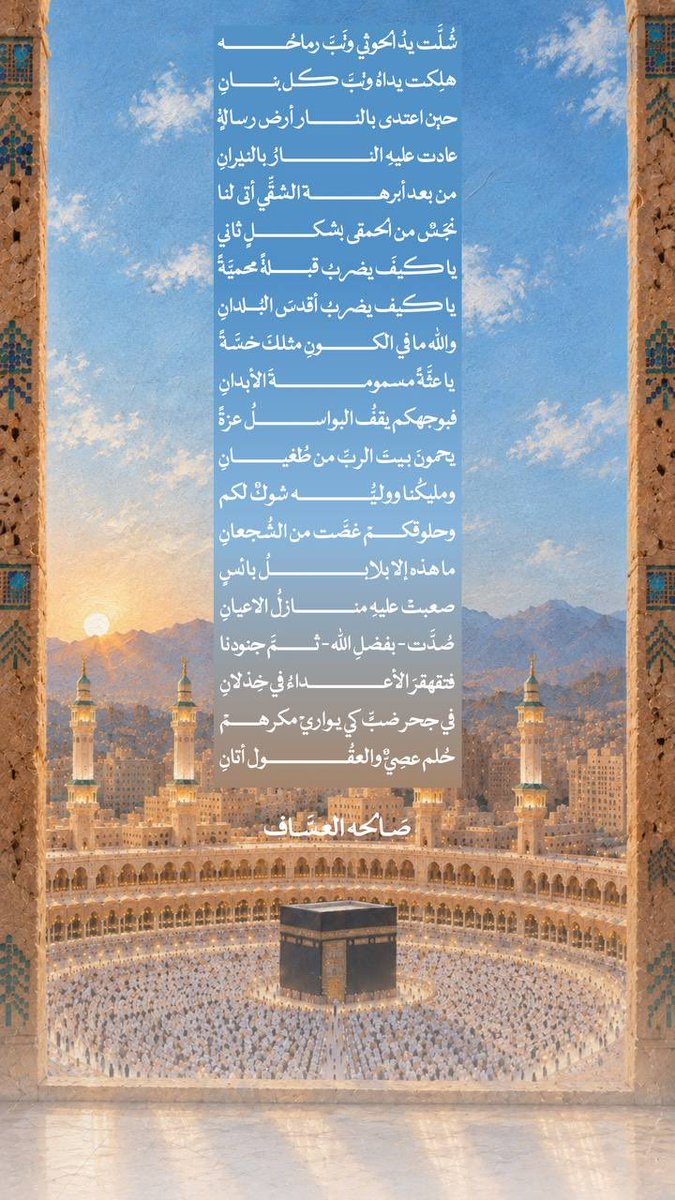 شُلَّت يدُ الحوثي وتَبَّ رماحُـه
هلِكت يداهُ وتبَّ كل بنـانِ
حين اعتدى بالنـار أرض رسالةٍ
عادت عليهِ النـارُ بالنيرانِ
من بعد أبرهـة الشقِّي أتى لنا
نجَسٌ من الحمقى بشكـلٍ ثاني
يا كيفَ يضربُ قبـلةً محميَّةً
يا كيف يضربُ أقدسَ البُلدانِ
والله ما في الكـونِ مثلكَ خسَّةً
يا عثَّةً مسمومـةَ الأبدانِ
فبوجهكم يقفُ البواسـلُ عزةً
يحمونَ بيتَ الربِّ من طُغيـانِ
ومليكُنا ووليُّـه شوكٌ لكم
وحلوقكـمْ غصَّت من الشُجعانِ
ما هذه إلا بلابـلُ بائسٍ
صعبتْ عليهِ منـازلُ الاعيانِ
صُدَّت - بفضلِ الله - ثـمَّ جنودنا
فتقهقرَ الأعـداءُ في خِذلانِ
في جحر ضبٍّ كي يواريْ مكرهـمْ
حُلم عصِيٌّ والعقُـول أتانِ
صَالحه العسَّاف